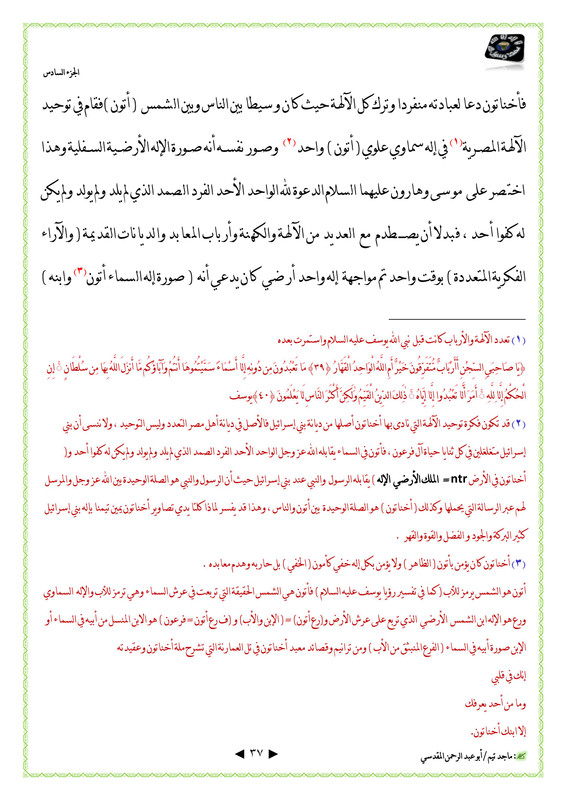 الجزء السادس
فأخناتون دعا لعبادته منفردا وترك كل الآلهة حيث كان وسيطا بين الناس وبين الشمس ( أتون ) فقام في توحيد
الآلهة المصرية (١) في إله سماوي علوي ( أتون ) واحد (٢) وصور نفسه أنه صورة الإله الأرضية السفلية وهذا
اختصر على موسى وهارون عليهما السلام الدعوة لله الواحد الأحد الفرد الصمد الذي لم يلد ولم يولد ولم يكن
له كفوا أحد ، فبدلا أن يصطدم مع العديد من الآلهة والكهنة وأرباب المعابد والديانات القديمة ( والآراء
الفكرية المتعددة ) بوقت واحد تم مواجهة إله واحد أرضي كان يدعي أنه ( صورة إله السماء أتون (٣) وابنه )
(١) تعدد الآلهة والأرباب كانت قبل نبي الله يوسف عليه السلام واستمرت بعده
﴿يَا صَاحِبَيِ السِّجْنِ أَأَرْبَابٌ مُتَفَرِّقُونَ خَيْرٌ أَمِ اللَّهُ الْوَاحِدُ الْقَهَّارُ ﴿٣٩﴾ مَا تَعْبُدُونَ مِن دُونِهِ إِلَّا أَسْمَاءً سَمَّيْتُمُوهَا أَنتُمْ وَآبَاؤُكُم مَّا أَنزَلَ اللَّهُ بِهَا مِن سُلْطَانٍ ۚ إِنِ
الْحُكْمُ إِلَّا لِلَّهِ ۚ أَمَرَ أَلَّا تَعْبُدُوا إِلَّا إِيَّاهُ ۚ ذَٰلِكَ الدِّينُ الْقَيِّمُ وَلَٰكِنَّ أَكْثَرَ النَّاسِ لَا يَعْلَمُونَ ﴿٤٠﴾ يوسف
(٢) قد تكون فكرة توحيد الآلهة التي نادى بها أخناتون أصلها من ديانة بني إسرائيل فالأصل في ديانة أهل مصر التعدد وليس التوحيد ، ولا ننسى أن بني
إسرائيل متغلغلين في كل ثنايا حياة آل فرعون ، فأتون في السماء يقابله الله عز وجل الواحد الأحد الفرد الصمد الذي لم يلد ولم يولد ولم يكن له كفوا أحد و(
أخناتون في الأرض ntr = الملك الأرضي الإله ) يقابله الرسول والنبي عند بني إسرائيل حيث أن الرسول والنبي هو الصلة الوحيدة بين الله عز وجل والمرسل
لهم عبر الرسالة التي يحملها وكذلك ( أخناتون ) هو الصلة الوحيدة بين أتون والناس ، وهذا قد يفسر لماذا كلتا يدي تصاوير أخناتون يمين تيمنا بإله بني إسرائيل
كثير البركة والجود و الفضل والقوة والقهر .
(٣) أخناتون كان يؤمن بأتون ( الظاهر ) ولا يؤمن بكل إله خفي كأمون ( الخفي ) بل حاربه وهدم معابده .
أتون هو الشمس يرمز للأب ( كما في تفسير رؤيا يوسف عليه السلام ) فأتون هي الشمس الحقيقة التي تربعت في عرش السماء وهي ترمز للأب والإله السماوي
ورع هو الإله ابن الشمس الأرضي الذي تربع على عرش الأرض و( رع أتون ) = ( الإبن والأب ) و ( ف رع أتون = فرعون ) هو الابن المنسل من أبيه في السماء أو
الإبن صورة أبيه في السماء ( الفرع المنبثق من الأب ) ومن ترانيم وقصائد معبد أخناتون في تل العمارنة التي تشرح ملة أخناتون وعقيدته
إنك في قلبي
وما من أحد يعرفك
إلا ابنك أخناتون.
: ماجد تيم / أبو عبد الرحمن المقدسي
◄ ٣٧ ►